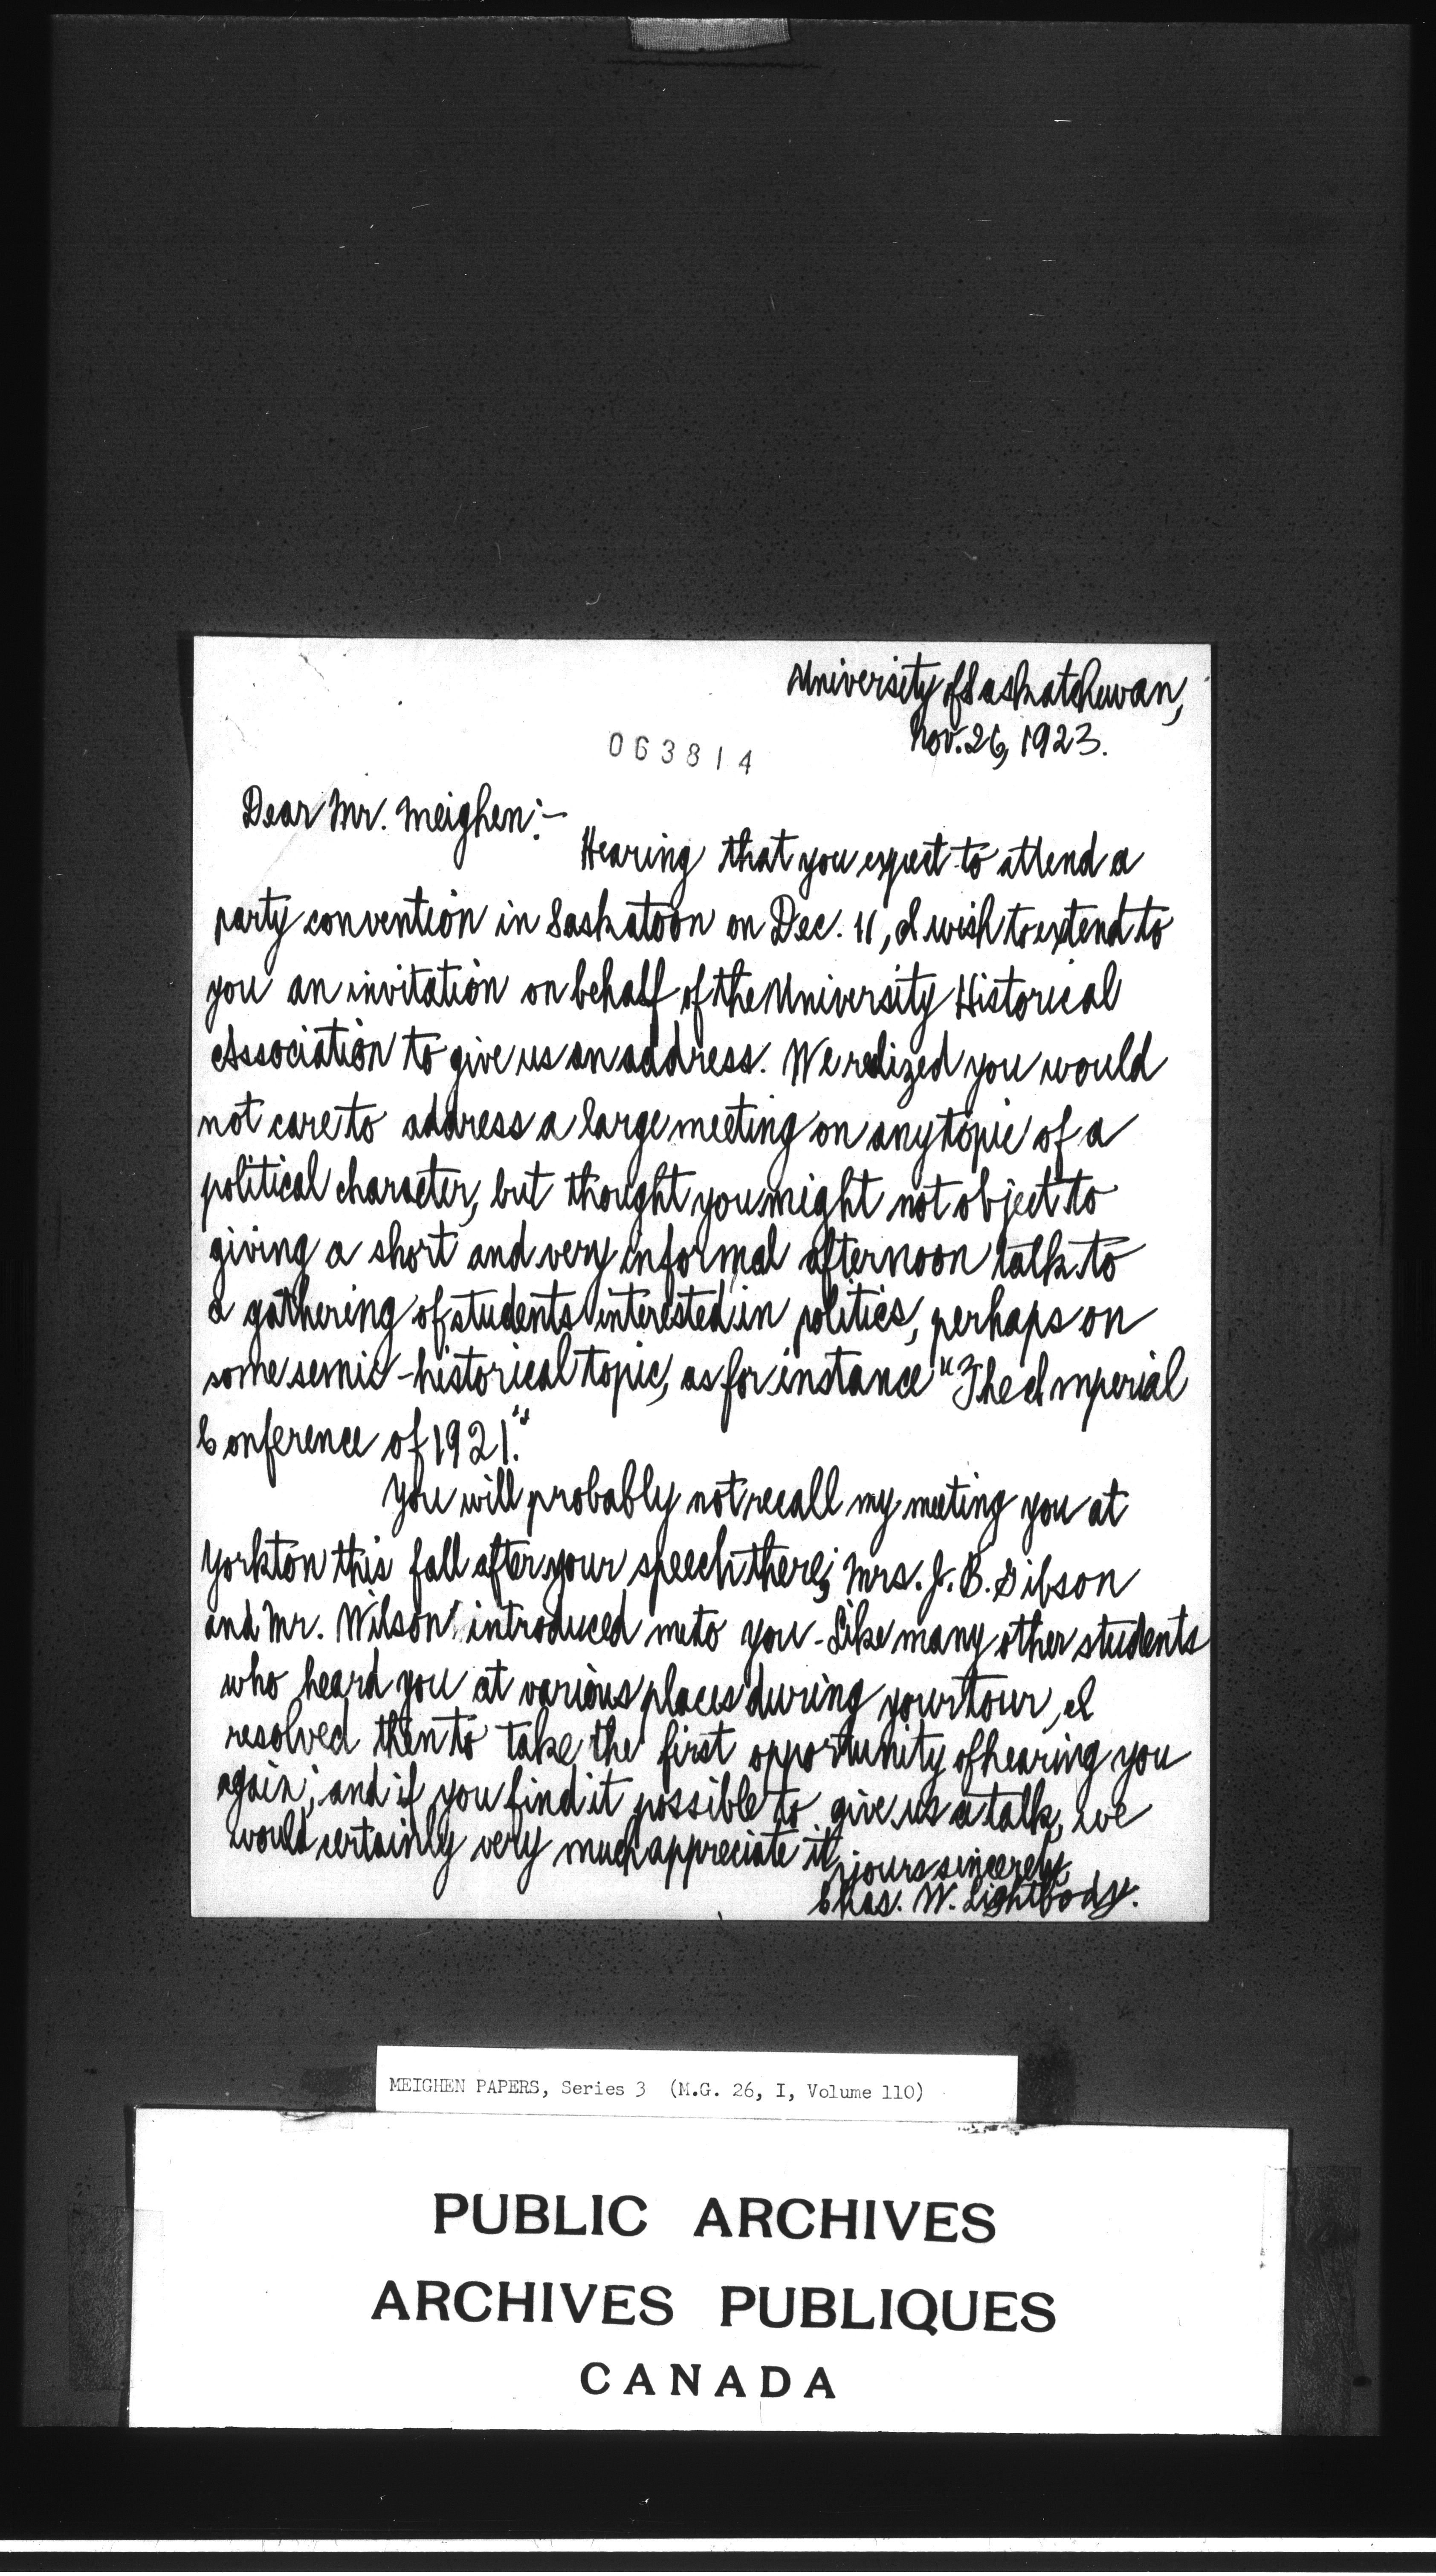 University of Saskatchewan,
Nov. 26, 1923.
063814
Dear Mr. Meighen:-
Hearing that you expect to attend a
party convention in Saskatoon on Dec. 11, I wish to extend to
you an invitation on behalf of the University Historical
Association to give us an address. We realized you would
not care to address a large meeting on any topic of a
political character, but thought you might not object to
giving a short and very informal afternoon talk to
a gathering of students interested in politics, perhaps on
some semi-historical topic, as for instance "The Imperial
Conference of 1921."
You will probably not recall my meeting you at
Yorkton this fall after your speech there; Mrs. J. B. Gibson
and Mr. Wilson introduced me to you. Like many other students
who heard you at various places during your tour, I
resolved then to take the first opportunity of hearing you
again; and if you find it possible to give us a talk, we
would certainly very much appreciate it,
yours sincerely,
Chas. W. Lightbody.
MEIGHEN PAPERS, Series 3 (M.G. 26, I, Volume 110)
PUBLIC ARCHIVES
ARCHIVES PUBLIQUES
CANADA